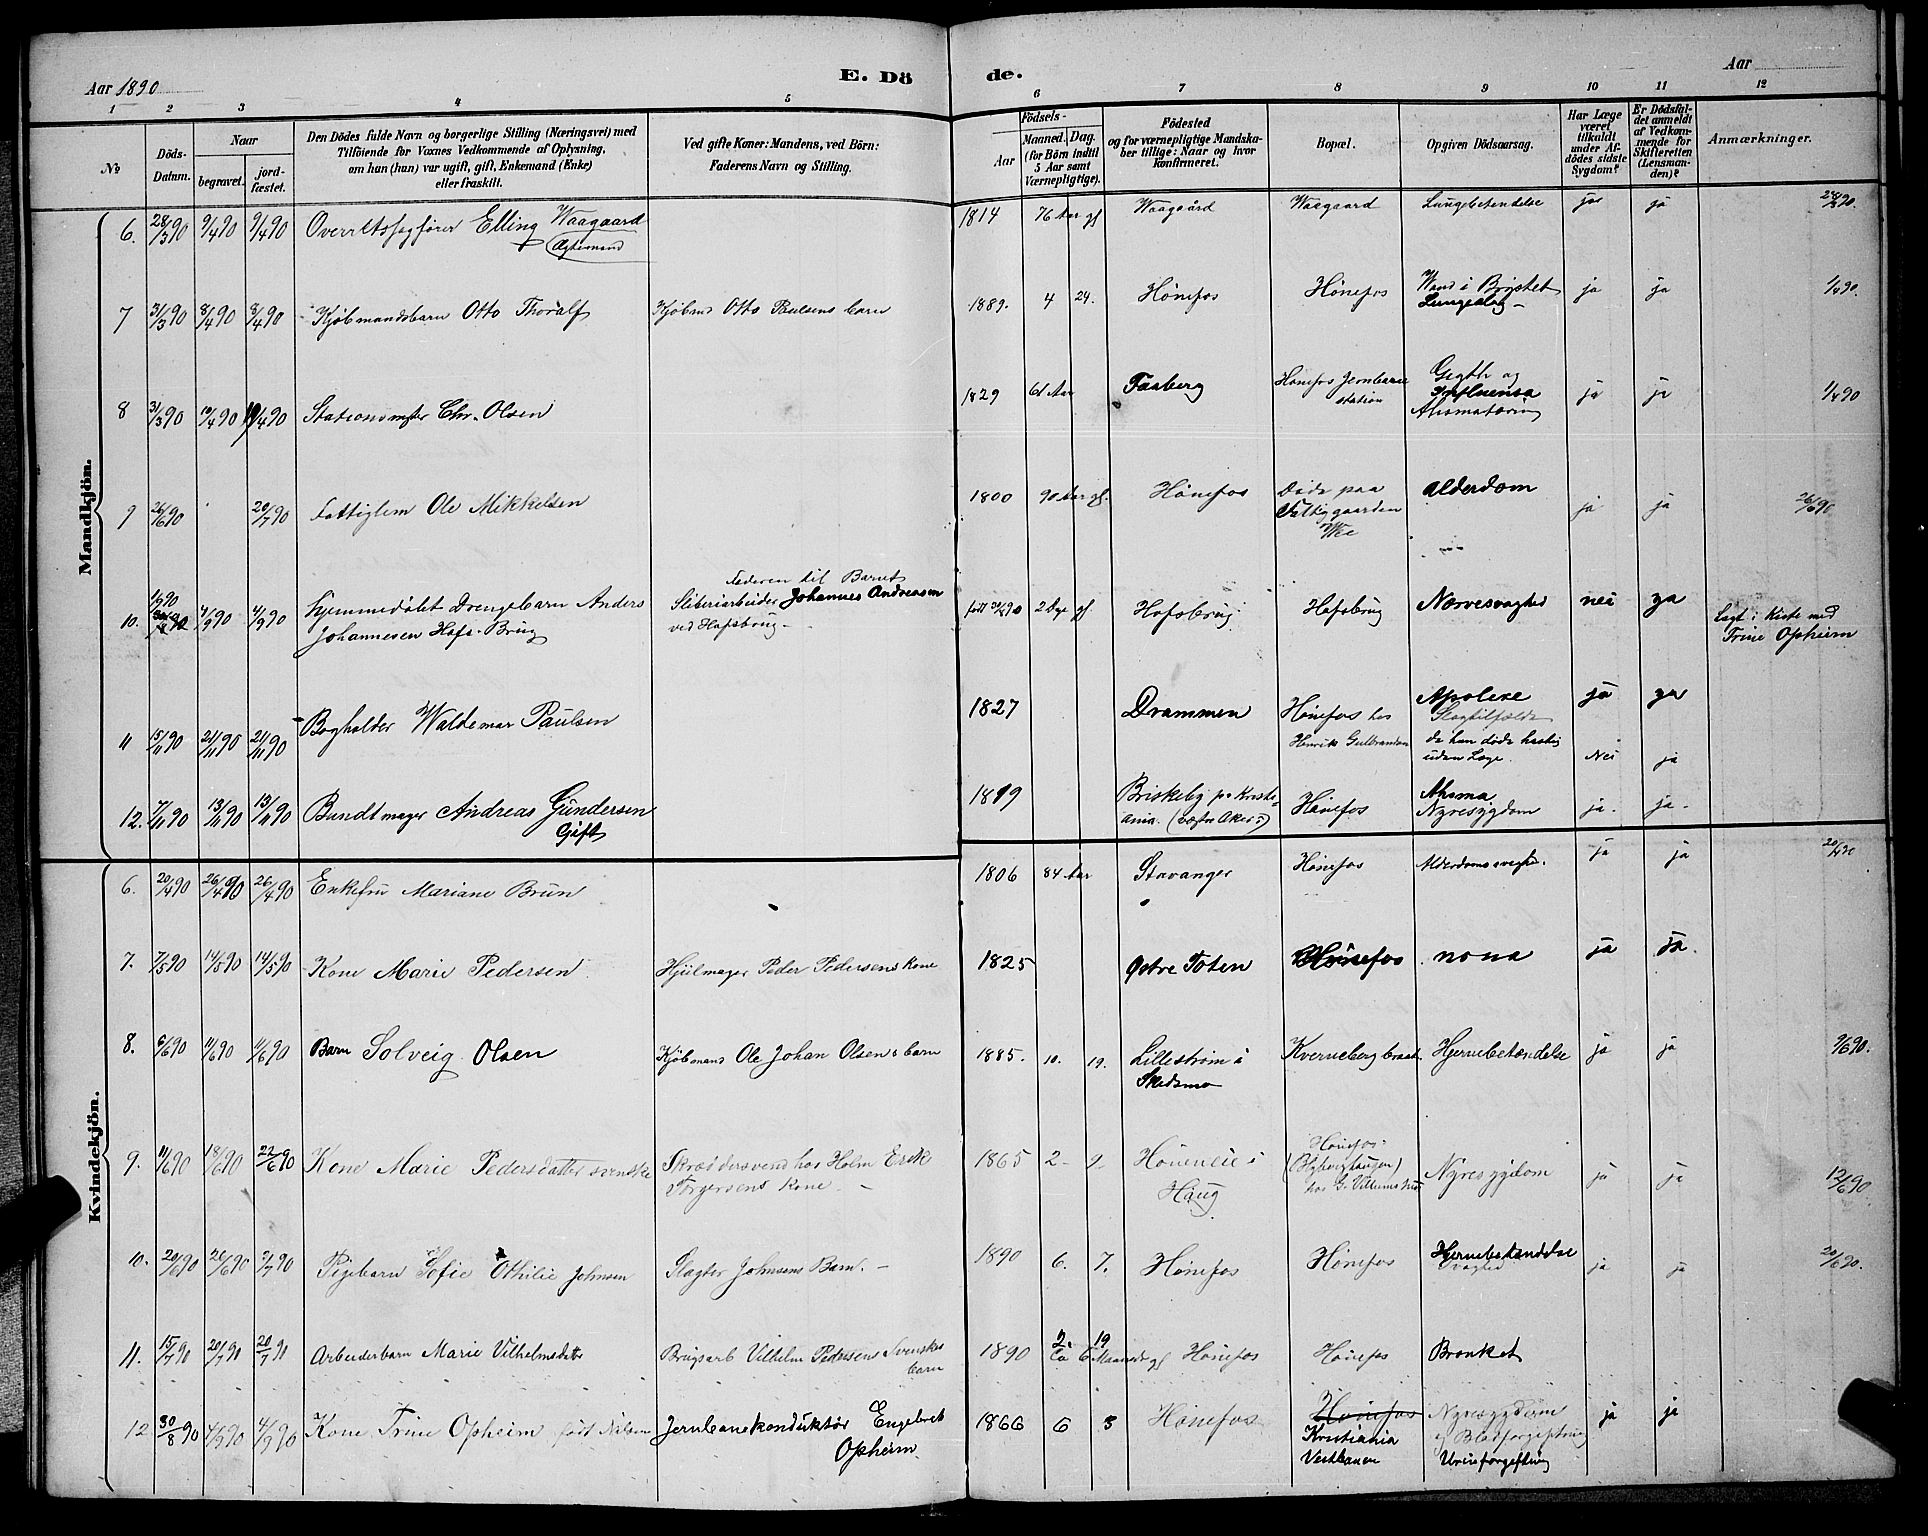 Aar 1890
E. Dö
de.
Aar
1 2 3 4 5 6 7 8 9 10 11 12
№
Döds-
Datum.
Naar
begravet.
jord-
fæstet.
Den Dödes fulde Navn og borgerlige Stilling (Næringsvei) med
Tilföiende for Voxnes Vedkommende af Oplysning,
om han (hun) var ugift, gift, Enkemand (Enke)
eller fraskilt.
Ved gifte Koner: Mandens, ved Börn:
Faderens Navn og Stilling.
Födsels-
Aar
Maaned. Dag.
(for Börn indtil
5 Aar samt
Værnepligtige).
Födested
og for værnepligtige Mandska-
ber tillige: Naar og hvor
konfirmeret.
Bopæl.
Opgiven Dödsaarsag.
Har Læge
været
tilkaldt
under Af-
dödes sidste
Sygdom?
Er Dödsfal-
det anmeldt
af Vedkom-
mende for
Skifteretten
(Lensman-
den)?
Anmærkninger.
Mandkjön.
6. 28/3 90 9/4 90 9/4 90 Overretssagfører Elling Waagaard 1814 76 Aar gl Waagaard Waagaard Lungebetendelse ja ja 28/3 90.
(Ægtemand
7 31/3 90 8/4 90 8/4 90 Kjøbmandsbarn Otto Thoralf Kjøbmd Otto Paulsens barn 1889. 4 24. Hønefos Hønefos Wand i Brystet ja ja 1/4 90.
Lungeslag –
8 31/3 90 10/4 90 10/4 90 Stationsmster Chr. Olsen 1829 61 Aar Faaberg Hønefos Jernbane Gigth og ja ja 1/4 90
station Influensa
9 26/6 90 20/7 90 Fattiglem Ole Mikkelsen 1800 90 Aar gl. Hønefos Døde paa Alderdom ja ja 26/6 90
Fattiggaarden
Wee
10. 1/9 90 4/9 90 4/9 90 Hjemmedøbt Drengebarn Anders
Johannesen Hofs-Brug
Faderen til Barnet
Sliberiarbeider Johannes Andreasen
ved Hofsbrug –
født 30/8 90 2 Dge gl Hofsbrug Hofsbrug Nervesvaghed nei ja
lagt i Kiste med
Trine Opheim
11 15/11 90 21/11 90 21/11 90 Bogholder Waldemar Paulsen 1827 Drammen Hønefos hos Apolexe ja ja
Henrik Gulbrandsen Slagtilfælde
da han døde hastig
uden Læge. Nei ja
12. 7/11 90 13/11 90 13/11 90 Bundtmager Andreas Gundersen 1819 Briskeby pr Kristi- Hønefos Ahsma ja. ja.
Gift ania. (vestre Aker) Nyresygdom
Kvindekjön.
6. 20/4 90 26/4 90 26/4 90 Enkefru Mariane Brun 1806 84 Aar Stavanger Hønefos Alderdomssvagh. ja ja 20/4 90
7. 7/5 90 14/5 90 14/5 90 Kone Marie Pedersen Hjulmager Peder Pedersens kone 1825 Østre Toten Hønefos nona ja ja.
8. 6/6 90 11/6 90 11/6 90 Barn Solveig Olsen Kjøbmand Ole Johan Olsens barn 1885. 10. 19. Lillestrøm i Kvernebergbraat. Hjernebetændelse ja ja 9/6 90.
Skedsmo
9. 11/6 90 18/6 90 22/6 90 Kone Marie Pedersdatter svenske Skræddersvend hos Holm Erik
Torgersens kone –
1865 2 9 Hønen eie i
Haug
Hønefos
hos G. Vilhums hus
Nyresygdom ja ja 12/6 90
10. 20/6 90 26/6 90 2/7 90 Pigebarn Sofie Othilie Johnsen Slagter Johnsens Barn. – 1890 6. 7. Hønefos Hønefos Hjernebetændelse ja ja 20/6 90.
Svaghed
11. 15/7 90 20/7 90 20/7 90 Arbeiderbarn Marie Vilhelmsdtr Brugsarb Vilhelm Pedersens Svenskes
barn
1890 2 19
Ca 6 Maaneder gl Hønefos Hønefos Bronket
12 30/8 90 4/9 90 4/9 90 Kone Trine Opheim født Nilsen Jernbanekonduktør Engebret
Opheim
1866 6 3 Hønefos Hønefos
Kristiania
Vestbanen
Nyresygdom
og Blodforgiftning
Urinforgiftning
ja ja